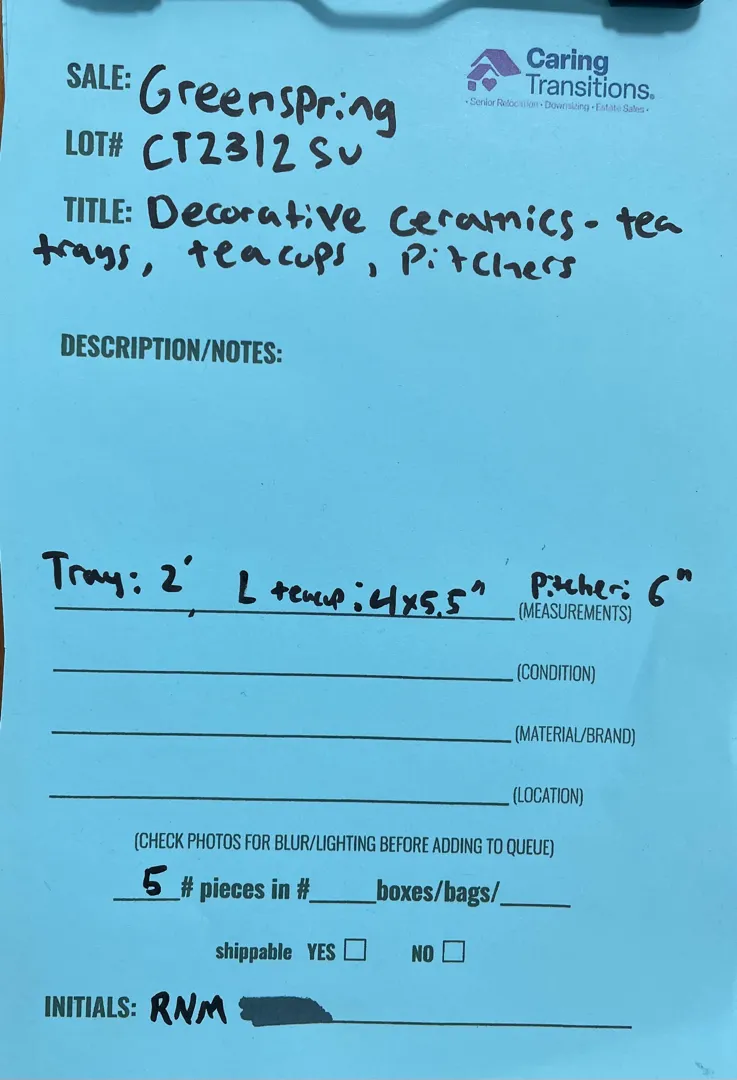 Caring
Transitions.
• Senior Relocation • Downsizing • Estate Sales •
SALE: Greenspring
LOT# CT2312SU
TITLE: Decorative ceramics - tea
trays, teacups, Pitchers
DESCRIPTION/NOTES:
Tray: 2', L teacup: 4x5.5" Pitcher: 6"
(MEASUREMENTS)
(CONDITION)
(MATERIAL/BRAND)
(LOCATION)
(CHECK PHOTOS FOR BLUR/LIGHTING BEFORE ADDING TO QUEUE)
5 # pieces in #____ boxes/bags/____
shippable YES ☐ NO ☐
INITIALS: RNM